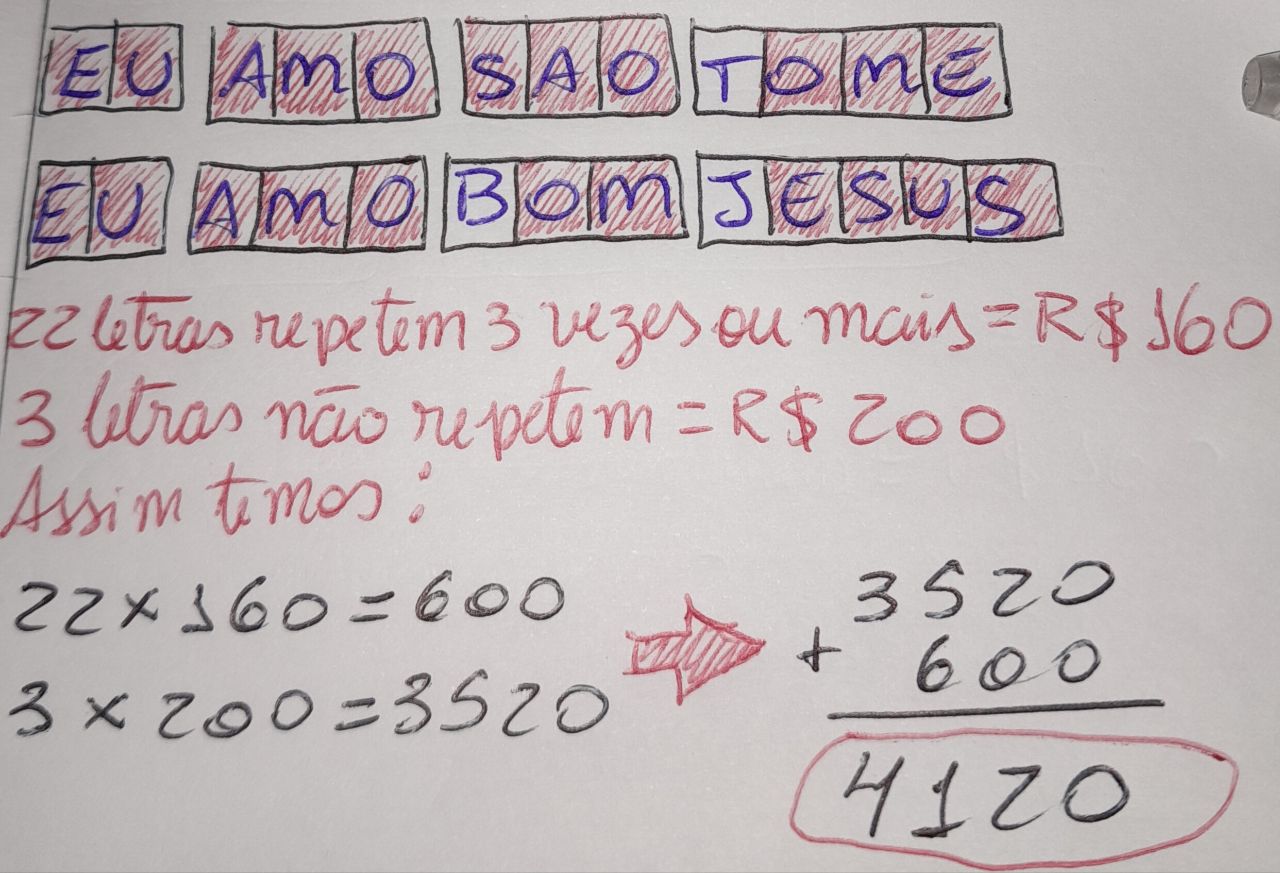 EU AMO SAO TOME
EU AMO BOM JESUS
22 letras repetem 3 vezes ou mais = R$ 160
3 letras não repetem = R$ 200
Assim temos:
22 x 160 = 600
3 x 200 = 3520
3520
+ 600
4120